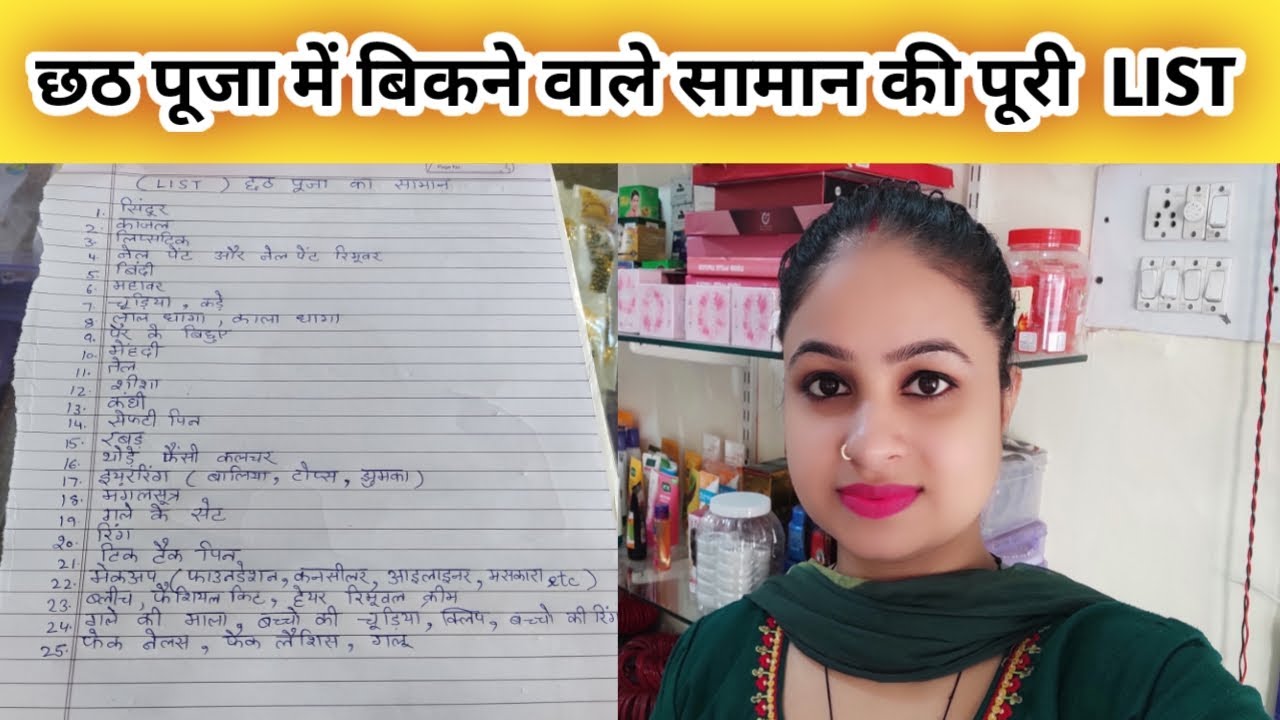 छठ पूजा में बिकने वाले सामान की पूरी LIST
( LIST ) छठ पूजा का सामान
1. सिंदूर
2. काजल
3. लिप्सटिक
4. नेल पेंट और नेल पेंट रिमूवर
5. बिंदी
6. महावर
7. चूड़िया, कड़े
8. लाल धागा, काला धागा
9. पैर के बिछुए
10. मेहंदी
11. तेल
12. शीशा
13. कंघी
14. सेफ्टी पिन
15. रबड़
16. थोड़े फैंसी कलचर
17. इयररिंग ( बालिया, टोप्स, झुमका )
18. मंगलसूत्र
19. गले के सेट
20. रिंग
21. टिक टैक पिन
22. मेकअप ( फाउनडेशन, कनसीलर, आइलाइनर, मसकारा, etc )
23. ब्लीच, फेशियल किट, हेयर रिमूवल क्रीम
24. गले की माला, बच्चो की चूड़िया, क्लिप, बच्चो की रिंग
25. फेक नेलस, फेक लैशिस, गलू